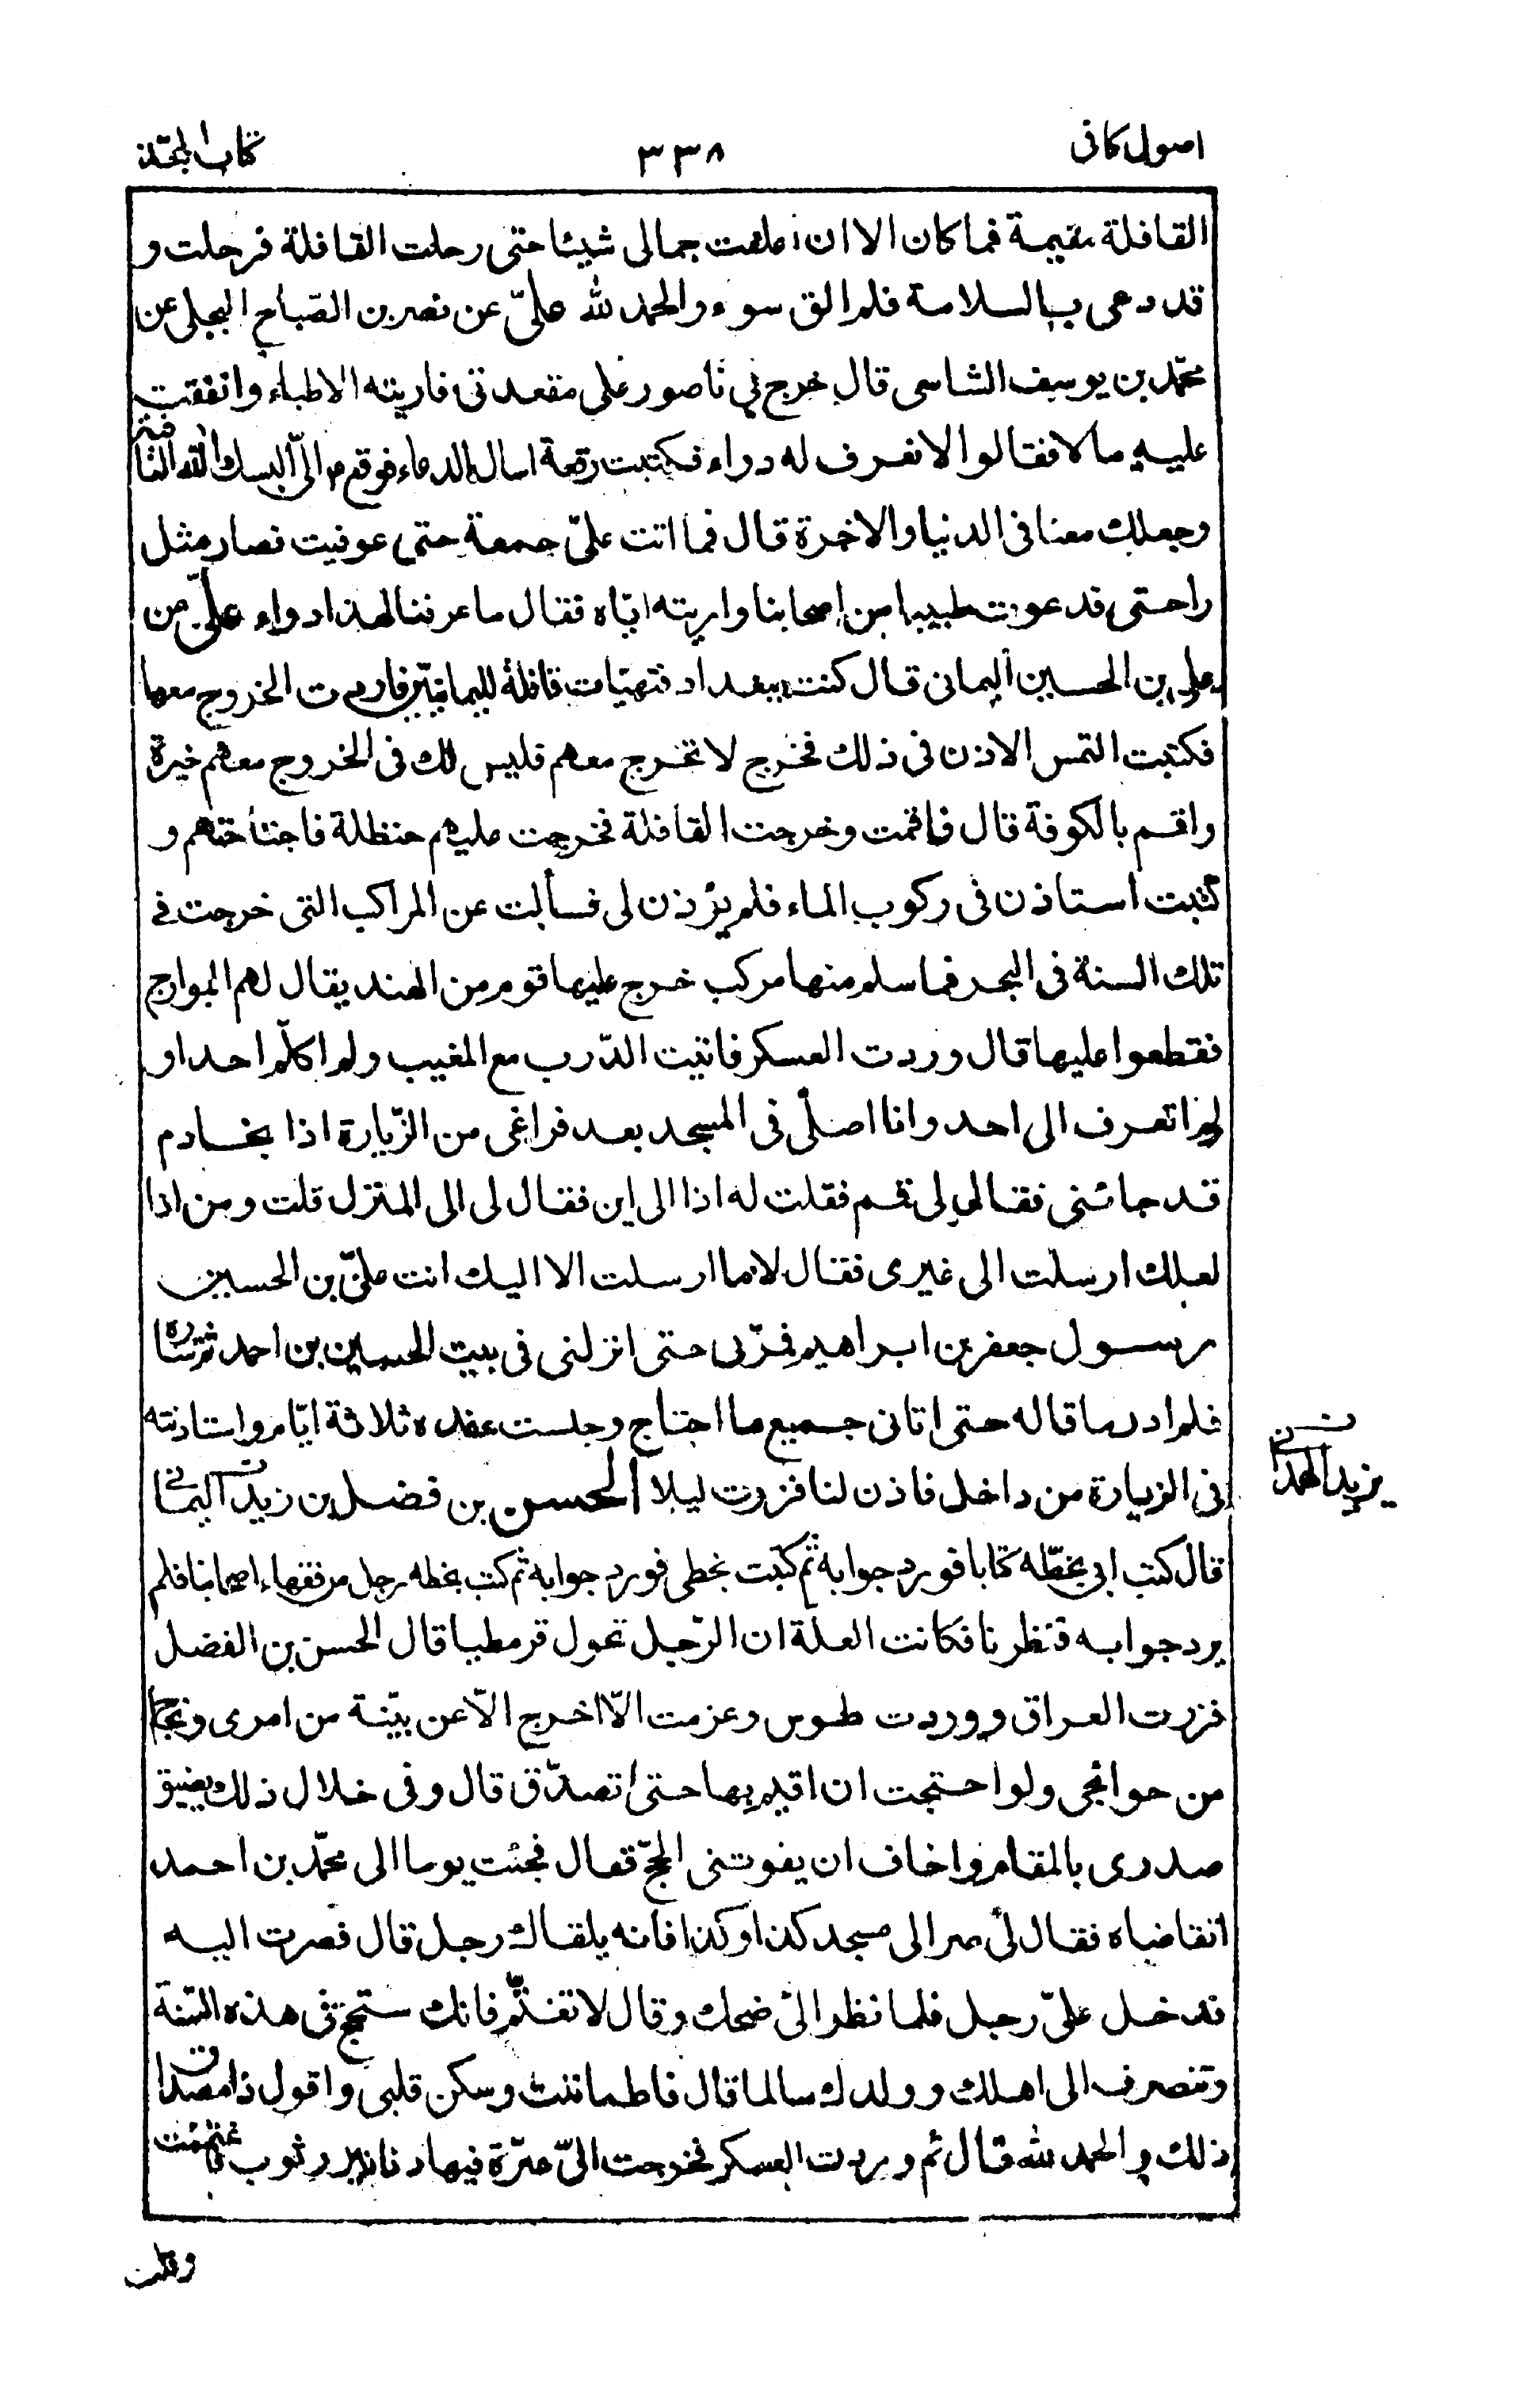 اصول كافى ٣٣٨ كتاب الحجّة
القافلة مقيمة فما كان الا ان اعلفت جمالى شيئا حتى رحلت القافلة فرحلت و
قد دعى بالسلامة فلم الق سوء والحمد لله علىّ عن نصر بن الصّباح البجلى عن
محمّد بن يوسف الشاسى قال خرج بي ناصور على مقعدتى فاريته الاطباء وانفقت
عليه مالا فقالوا لا نعرف له دواء فكتبت رقعة اسال الدعاء فوقع م الىّ البسك الله العافية
وجعلك معنا فى الدنيا والاخرة قال فما اتت علىّ جمعة حتى عوفيت فصار مثل
راحتى فدعوت طبيبا من اصحابنا واريته ايّاه فقال ما عرفنا لهذا دواء علىّ عن
على بن الحسين اليمانى قال كنت ببغداد فتهيّات قافلة لليمانيّين فاردت الخروج معها
فكتبت التمس الاذن فى ذلك فخرج لا تخرج معهم فليس لك فى الخروج معهم خيرة
واقم بالكوفة قال فاقمت وخرجت القافلة فخرجت عليهم حنظلة فاجتاحتهم و
كتبت استاذن فى ركوب الماء فلم يؤذن لى فسألت عن المراكب التى خرجت فى
تلك السنة فى البحر فما سلم منها مركب خرج عليها قوم من الهند يقال لهم البوارج
فقطعوا عليها قال وردت العسكر فاتيت الدّرب مع المغيب ولم اكلّم احدا و
لم اتعرف الى احد وانا اصلّى فى المسجد بعد فراغى من الزّيارة اذا بخادم
قد جائنى فقال لى قم فقلت له اذا الى اين فقال لى الى المنزل قلت ومن انا
لعلك ارسلت الى غيرى فقال لا ما ارسلت الا اليك انت علىّ بن الحسين
رسول جعفر بن ابراهيم فمرّ بى حتى انزلنى فى بيت الحسين بن احمد ثم سارّه
فلم ادر ما قاله حتى اتانى جميع ما احتاج وجلست عنده ثلاثة ايّام واستاذنته
فى الزيارة من داخل فاذن لنا فزرت ليلا الحسن بن فضل بن زيد اليمانى
يزيد الهمدانى
قال كتب ابى بخطّه كتابا فورد جوابه ثم كتبت بخطى فورد جوابه ثم كتب بخطه رجل من فقهاء اصحابنا فلم
يرد جوابه فنظرنا فكانت العلة ان الرّجل تحول قرمطيا قال الحسن بن الفضل
فزرت العراق ووردت طوس وعزمت الّا اخرج الّا عن بيّنة من امرى ونجاح
من حوائجى ولو احتجت ان اقيم بها حتى اتصدّق قال وفى خلال ذلك يضيق
صدرى بالمقام واخاف ان يفوتنى الحجّ قال فجئت يوما الى محمّد بن احمد
اتقاضاه فقال لى صر الى مسجد كذا وكذا فانه يلقاك رجل قال فصرت اليه
فدخل علىّ رجل فلما نظر الىّ ضحك وقال لا تغتّم فانك ستحج فى هذه السّنة
وتنصرف الى اهلك وولدك سالما قال فاطماننت وسكن قلبى واقول ذا مصداق
ذلك والحمد لله قال ثم وردت العسكر فخرجت الىّ صرّة فيها دنانير وثوب فاغتممت
وقلت